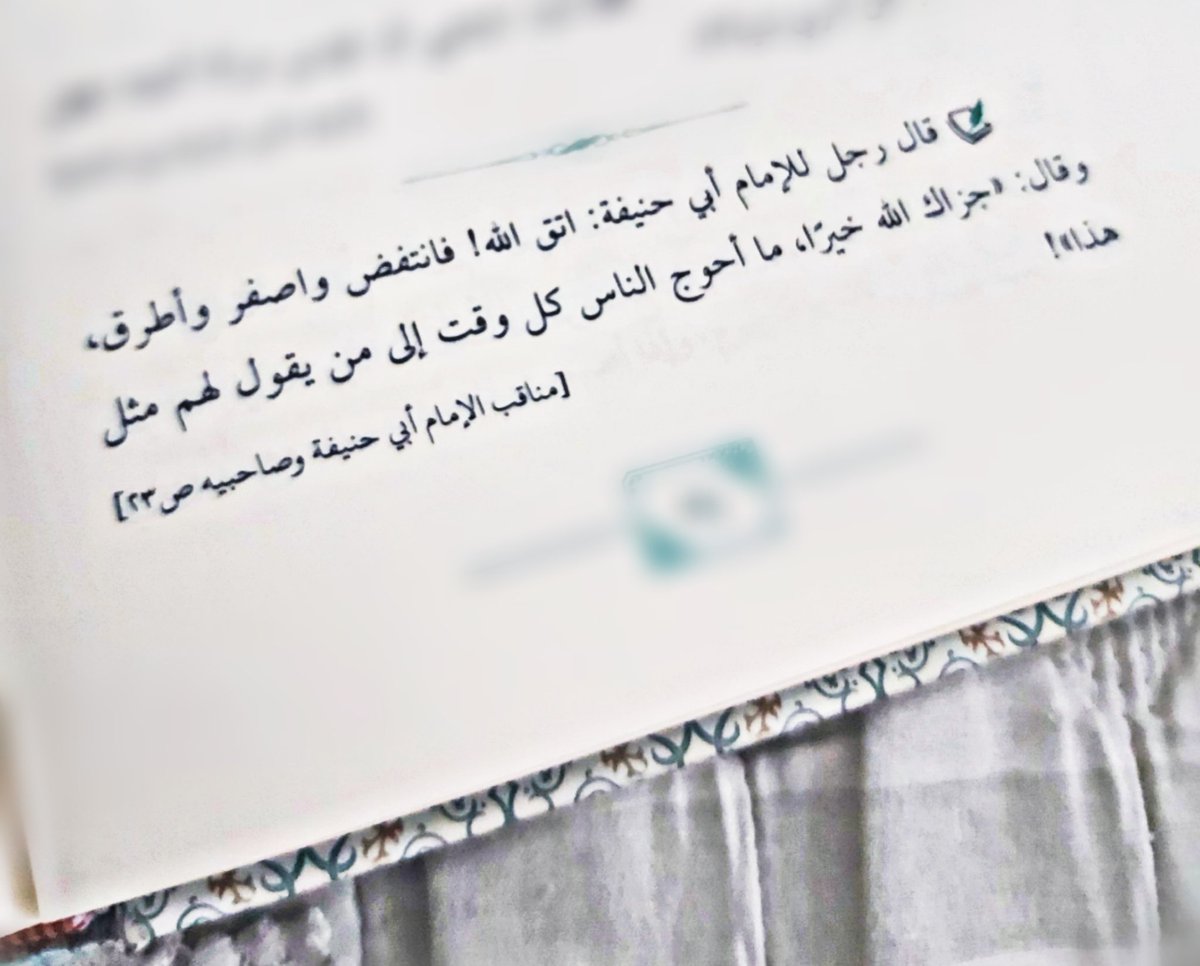 قال رجل للإمام أبي حنيفة: اتق الله! فانتفض واصفر وأطرق،
وقال: «جزاك الله خيرًا، ما أحوج الناس كل وقت إلى من يقول لهم مثل
هذا»!
[مناقب الإمام أبي حنيفة وصاحبيه ص٢٣]